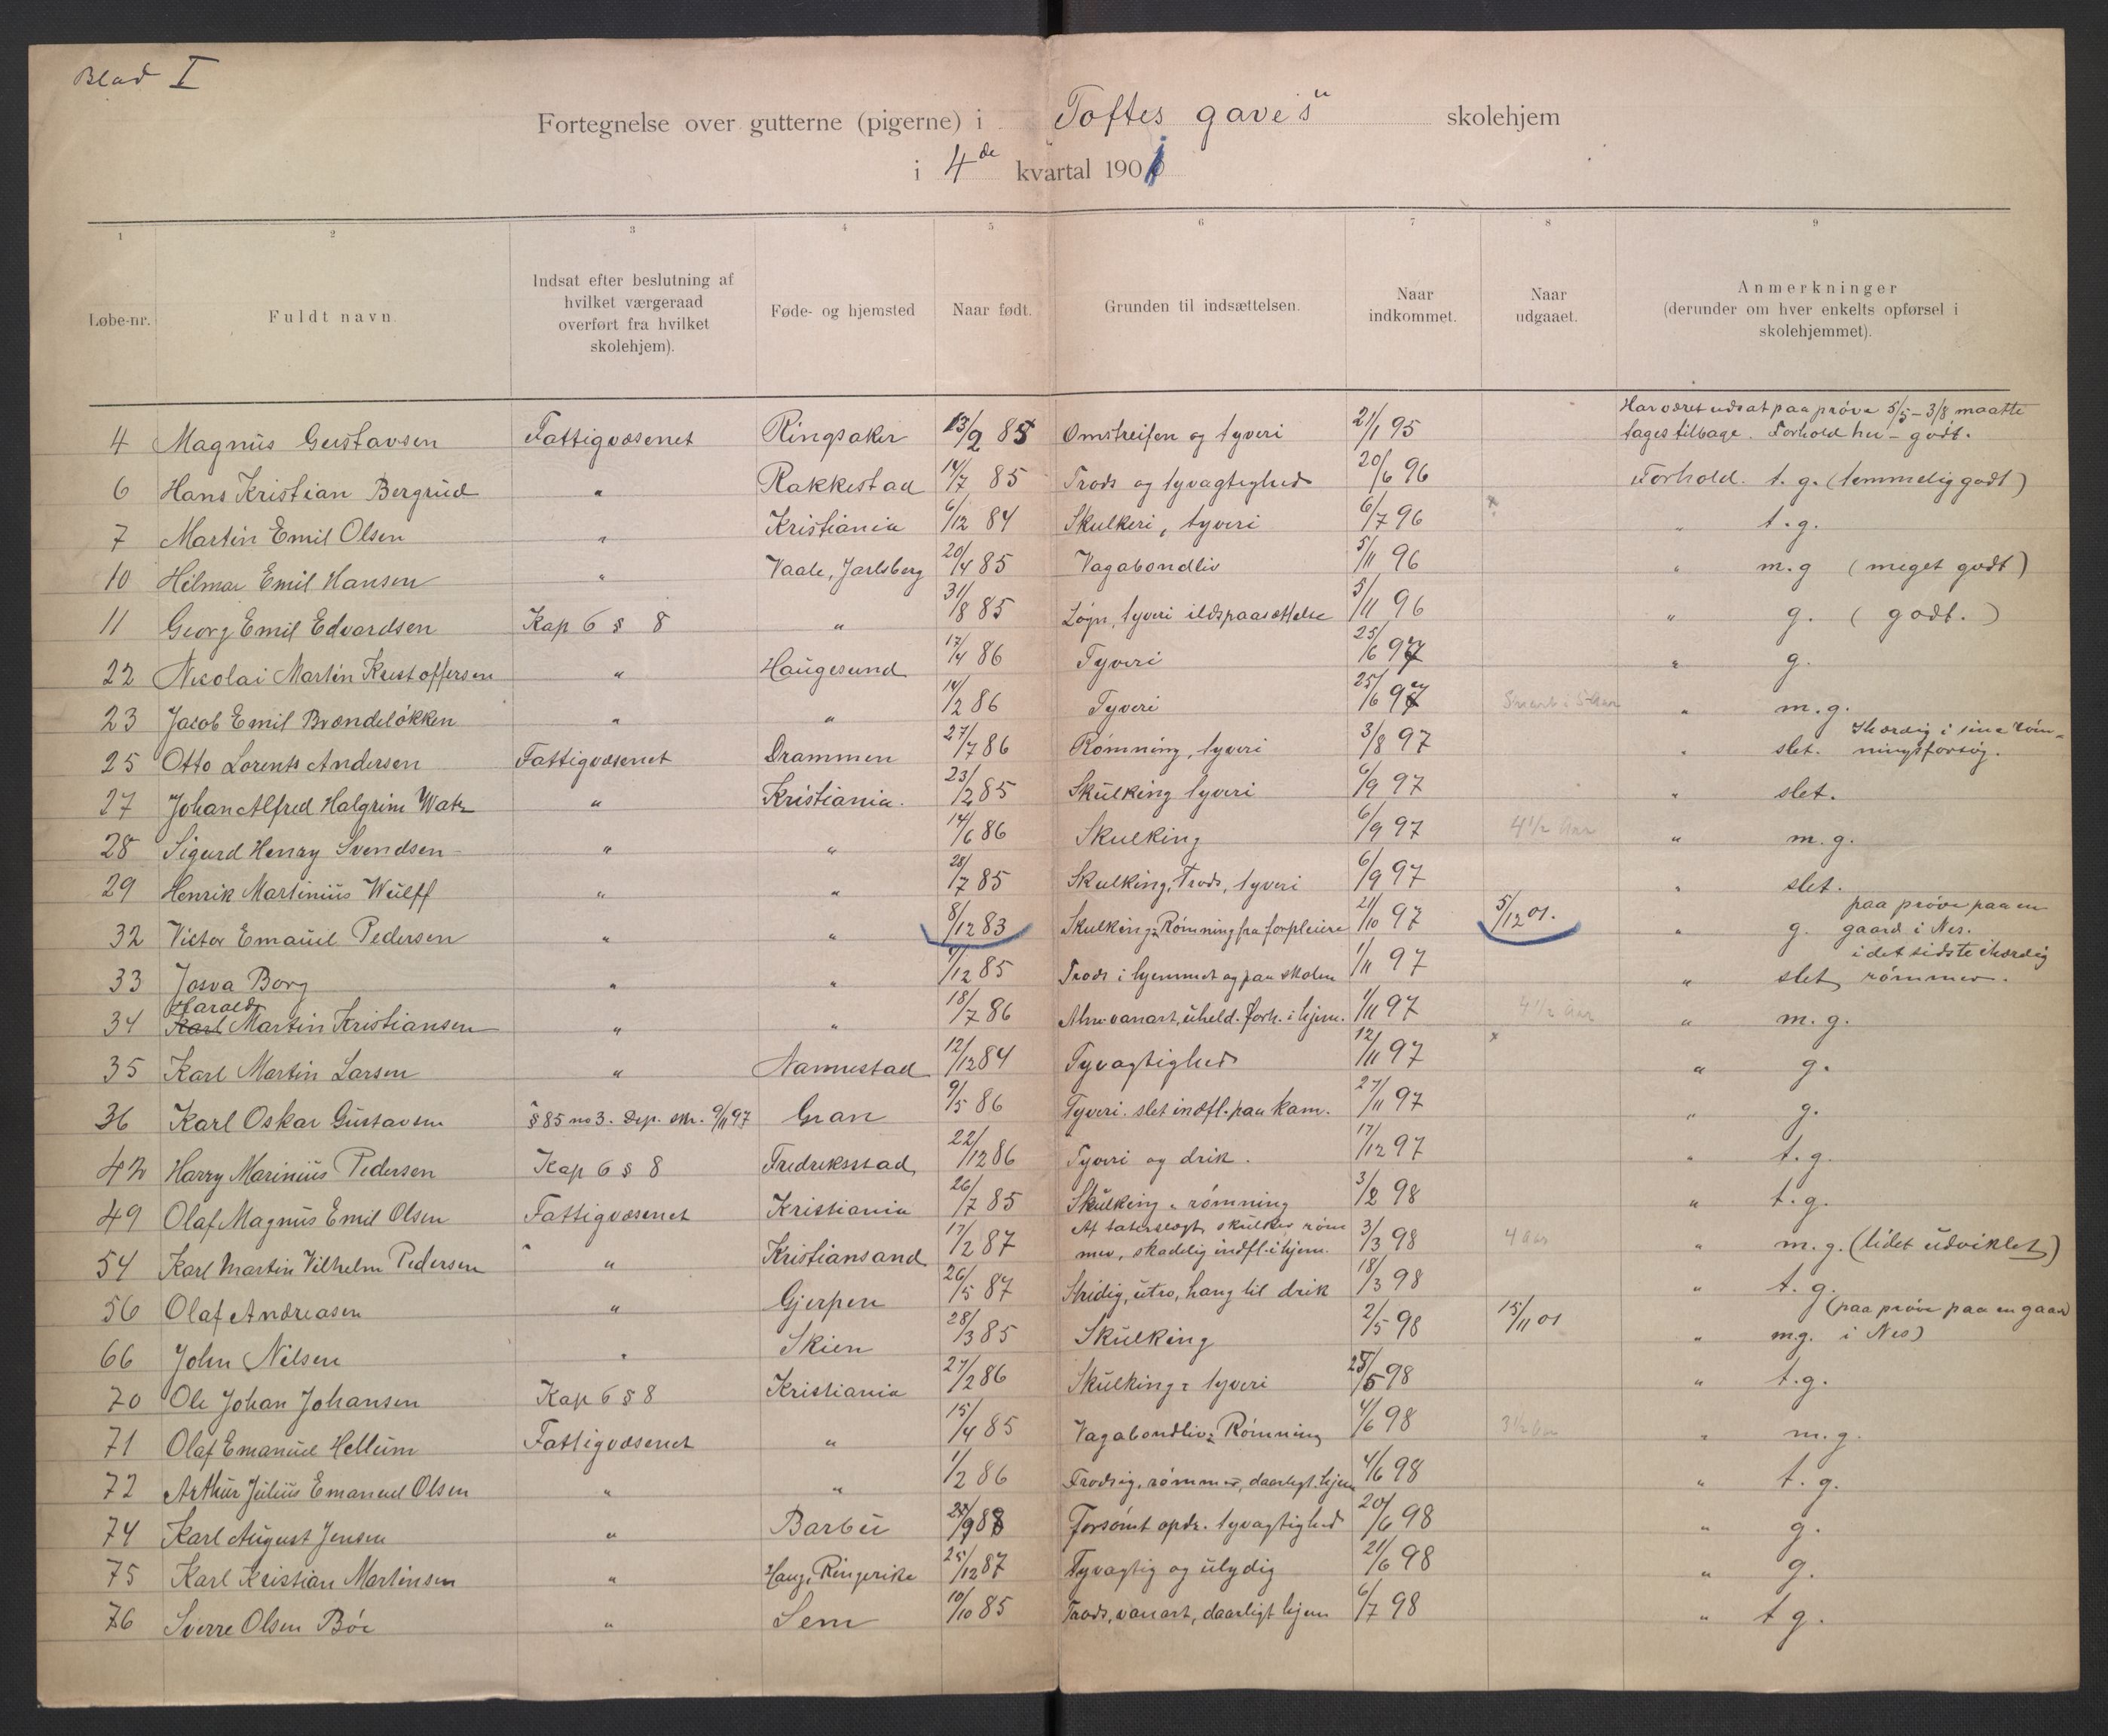 Blad I
Fortegnelse over gutterne (pigerne) i "Toftes gave's" skolehjem
i 4de kvartal 1901
1 2 3 4 5 6 7 8 9
Løbe-nr. Fuldt navn. Indsat efter beslutning af hvilket værgeraad overført fra hvilket skolehjem). Føde- og hjemsted Naar født. Grunden til indsættelsen. Naar indkommet. Naar udgaaet. Anmerkninger (derunder om hver enkelts opførsel i skolehjemmet).
Har været udsat paa prøve 5/5 – 3/8 maatte
4 Magnus Gustavsen Fattigvæsenet Ringsaker 13/2 85 Omstreifen og tyveri 21/1 95 tages tilbage. Forhold her – godt.
6 Hans Kristian Bergrud " Rakkestad 14/7 85 Trods og tyvagtighed 20/6 96 Forhold. t. g. (temmelig godt)
7 Martin Emil Olsen " Kristiania 6/12 84 Skulkeri, tyveri 6/7 96 x " t. g.
10 Hilmar Emil Hansen " Vaale, Jarlsberg 20/4 85 Vagabondliv 5/11 96 " m. g (meget godt)
11 Georg Emil Edvardsen Kap 6 § 8 " 31/8 85 Løgn, tyveri ildspaasættelse 5/11 96 " g. (godt.)
22 Nicolai Martin Kristoffersen " Haugesund 17/4 86 Tyveri 25/6 97 " g.
23 Jacob Emil Brændeløkken " " 14/2 86 Tyveri 25/6 97 Snart i 5 Aar " m. g.
ihærdig i sine røm-
25 Otto Lorents Andersen Fattigvæsenet Drammen 27/7 86 Rømning, tyveri 3/8 97 " slet. ningsforsøg.
27 Johan Alfred Halgrim Watz " Kristiania. 23/2 85 Skulking tyveri 6/9 97 " slet.
28 Sigurd Henry Svendsen " " 14/6 86 Skulking 6/9 97 4 1/2 Aar " m. g.
29 Henrik Martinius Wulff " " 28/7 85 Skulking, Trods, tyveri 6/9 97 " slet.
paa prøve paa en
32 Victor Emanuel Pedersen " " 8/12 83 Skulking, Rømning fra forpleiere 21/10 97 5/12 01. " g. gaard i Nes.
i det sidste ihærdig
33 Josva Borg " " /12 85 Trods i hjemmet og paa skolen 1/11 97 " slet rømmer.
Harald
34 Karl Martin Kristiansen " " 18/7 86 Alm. vanart, uheld. forh. i hjem. 1/11 97 4 1/2 Aar " m. g.
35 Karl Martin Larsen " Nannestad 12/12 84 Tyvagtighed 12/11 97 x " g.
36 Karl Oskar Gustavsen § 85 no 3. Dep. skr. 9/11 97 Gran 9/5 86 Tyveri. slet indfl. paa kam. 27/11 97 " g.
42 Harry Marinius Pedersen Kap 6 § 8 Fredriksstad 22/12 86 Tyveri og drik. 17/12 97 " t. g.
49 Olaf Magnus Emil Olsen Fattigvæsenet Kristiania 26/7 85 Skulking, rømning 3/2 98 " t. g.
Af taterslægt, skulker røm
54 Karl Martin Vilhelm Pedersen " Kristiansand 17/2 87 mer, skadelig indfl. i hjem. 3/3 98 4 aar " m. g. (lidet udviklet)
56 Olaf Andreasen " Gjerpen 26/5 87 Stridig, utro, hang til drik 18/3 98 " t. g.
(paa prøve paa en gaard
66 John Nilsen " Skien 28/3 85 Skulking 2/5 98 15/11 01 " m. g. i Nes)
70 Ole Johan Johansen Kap 6 § 8 Kristiania 27/2 86 Skulking, tyveri 25/5 98 " t. g.
71 Olaf Emanuel Hellum Fattigvæsenet " 15/4 85 Vagabondliv, Rømning 4/6 98 3 1/2 Aar " m. g.
72 Arthur Julius Emanuel Olsen " " 1/2 86 Trodsig, rømmer, daarligt hjem 4/6 98 " t. g.
74 Karl August Jensen " Barbu /9 88 Forsømt opdr. tyvagtighed 20/6 98 " g.
75 Karl Kristian Martinsen " Haug, Ringerike 25/12 87 Tyvagtig og ulydig 21/6 98 " g.
76 Sverre Olsen Bøe " Sem 10/10 85 Trods, vanart, daarligt hjem 6/7 98 " t g.